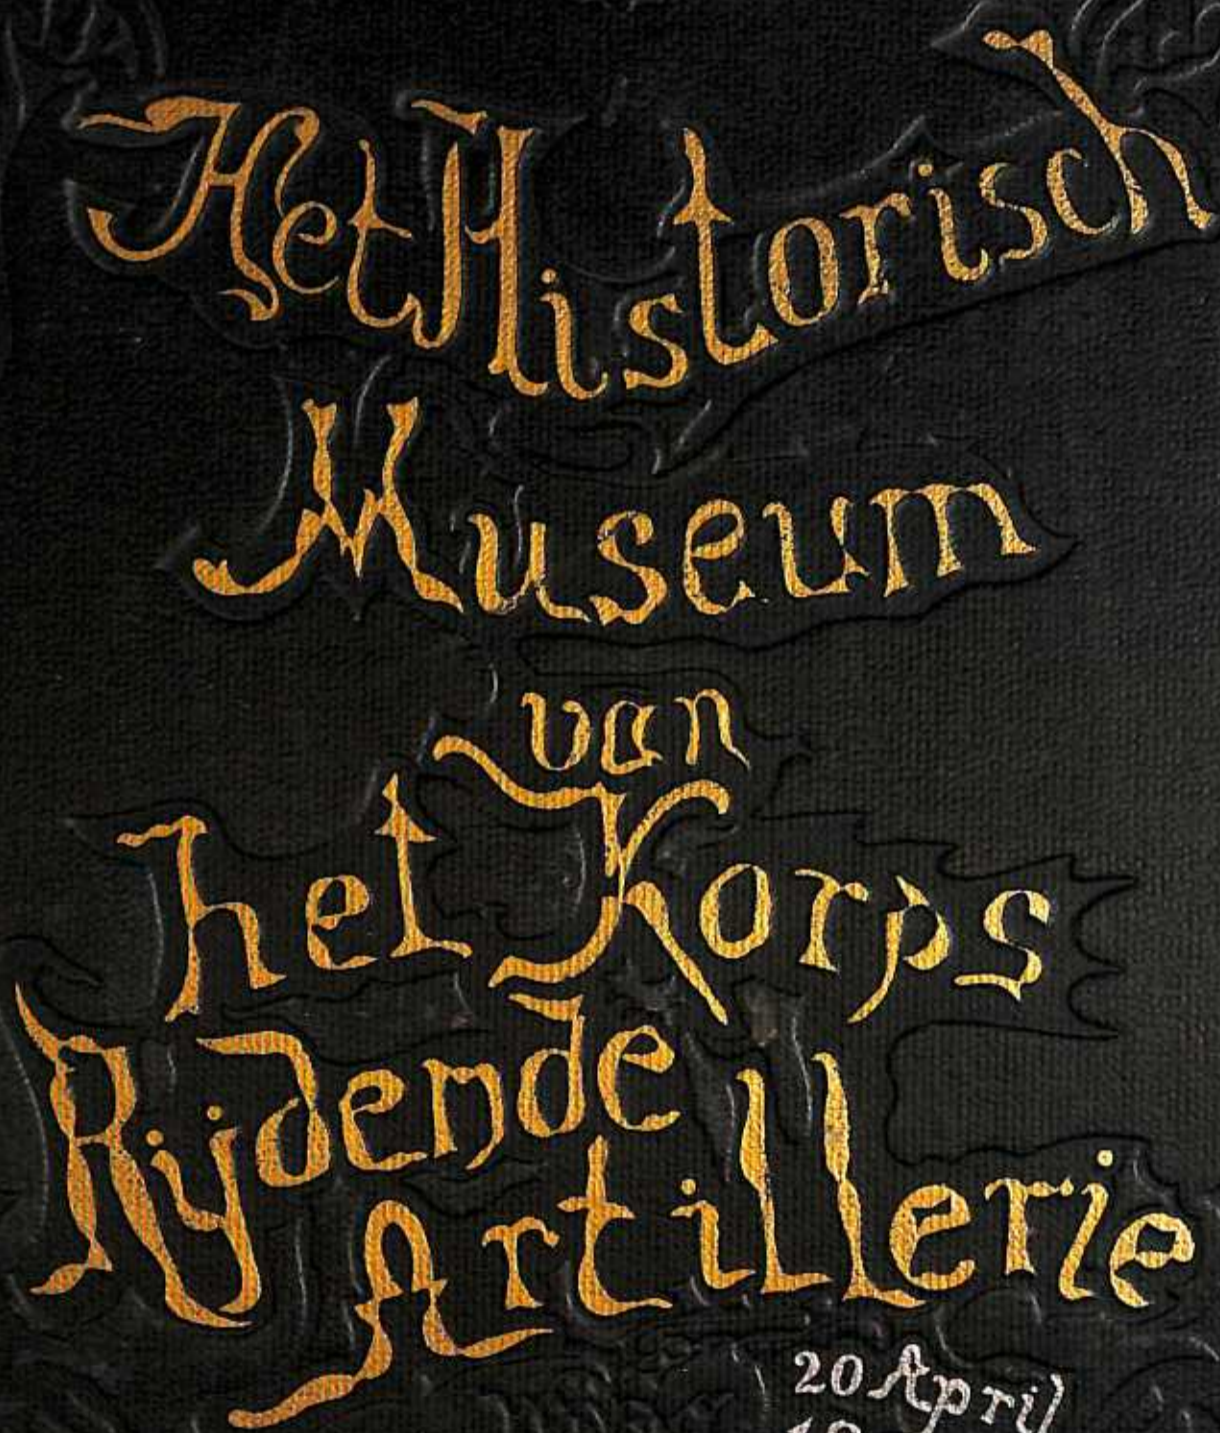 Het Historisch
Museum
van
het Korps
Rijdende
Artillerie
20 April